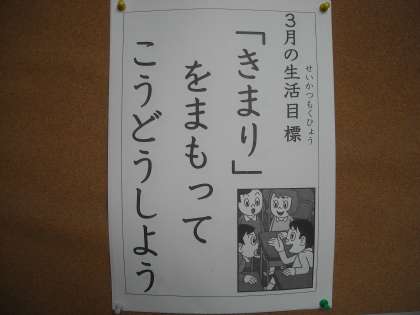 3月の生活目標
せいかつもくひょう
「きまり」
をまもって
こうどうしよう